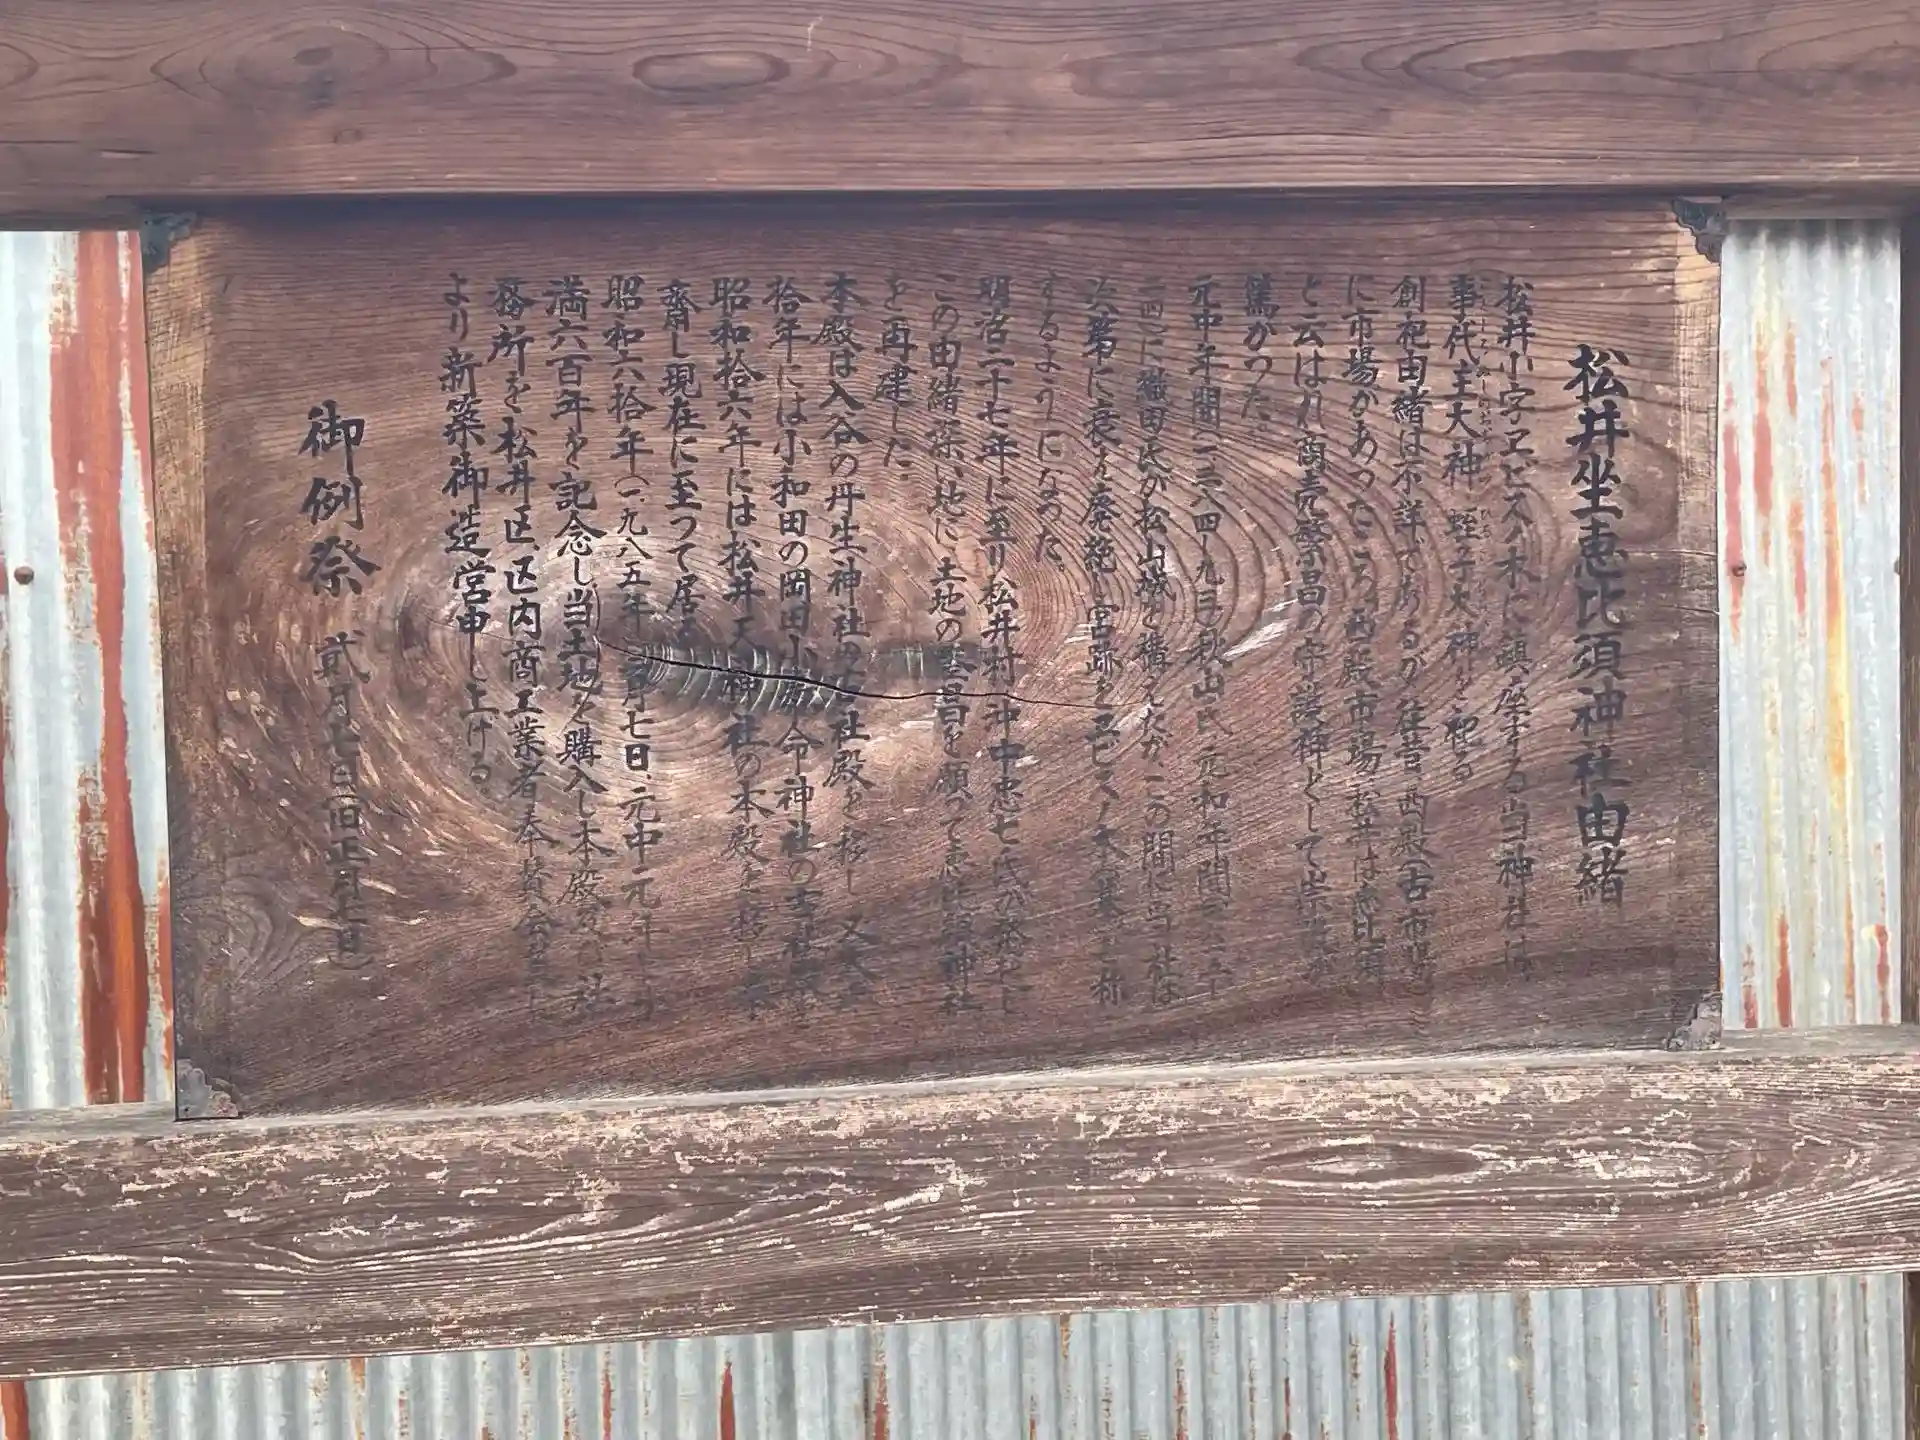 松井坐恵比須神社由緒
松井小字ヱビス木に鎮座する当神社は、
事代主大神 蛭子大神を祀る
創祀由緒は不詳であるが往昔西殿(古市場)
に市場があったころ、西殿市場、松井は恵比須
と云はれ商売繁昌の守護神として崇敬が
篤かった。
元中年間(一三八四〜九三)秋山氏、元和年間
に織田氏が松山城を構えたが、この間に当社は
次第に衰え廃絶し宮跡をヱビス木と称
するようになった。
明治二十七年に至り松井村 沖中忠七氏が
この由緒深い地に、土地の繁昌を願って恵比須神社
を再建した。
本殿は入谷の丹生神社の古社殿を移し 又大正
拾年には小和田の岡田小命神社の
昭和拾六年には松井天神社の本殿を移し
齋し現在に至って居る
昭和六拾年(一九八五年)二月七日、元中元年より
満六百年を記念し当土地を購入し本殿及び社
務所を松井区、区内商工業者奉賛会
より新築御造営申し上げる。
御例祭 貳月七日(旧正月七日)